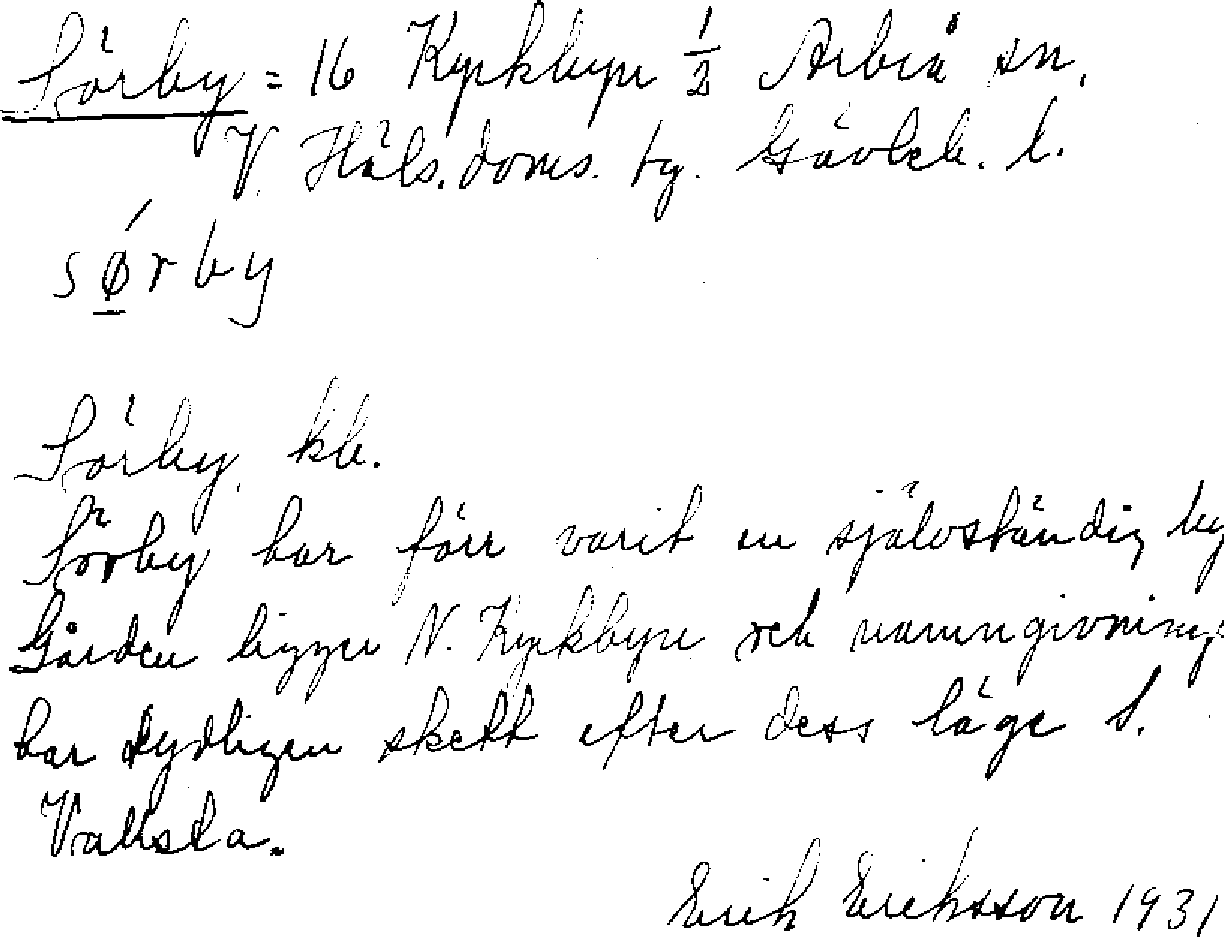 Sörby = 16 Kyrkbyn 1/2 Arbrå sn.
V. Häls. doms. tg. Gävleb. l.
sǿ̱rby
Sörby, kb.
Sörby har förr varit en självständig by
Gården ligger N. Kyrkbyn och namngivning
har tydligen skett efter dess läge S.
Vallsta.
Erik Eriksson 1931